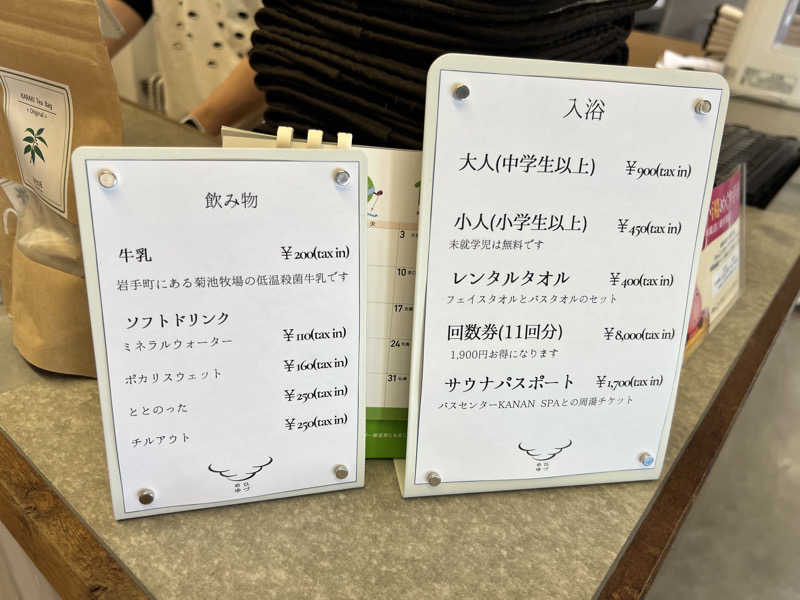 KANAKI Tea Bag
< Original >
飲み物
牛乳 ¥200(tax in)
岩手町にある菊池牧場の低温殺菌牛乳です
ソフトドリンク
ミネラルウォーター ¥110(tax in)
ポカリスウェット ¥160(tax in)
ととのった ¥250(tax in)
チルアウト ¥250(tax in)
火
3
10
17
24
31
入浴
大人(中学生以上) ¥900(tax in)
小人(小学生以上) ¥450(tax in)
未就学児は無料です
レンタルタオル ¥400(tax in)
フェイスタオルとバスタオルのセット
回数券(11回分) ¥8,000(tax in)
1,900円お得になります
サウナパスポート ¥1,700(tax in)
バスセンターKANAN SPAとの周湯チケット